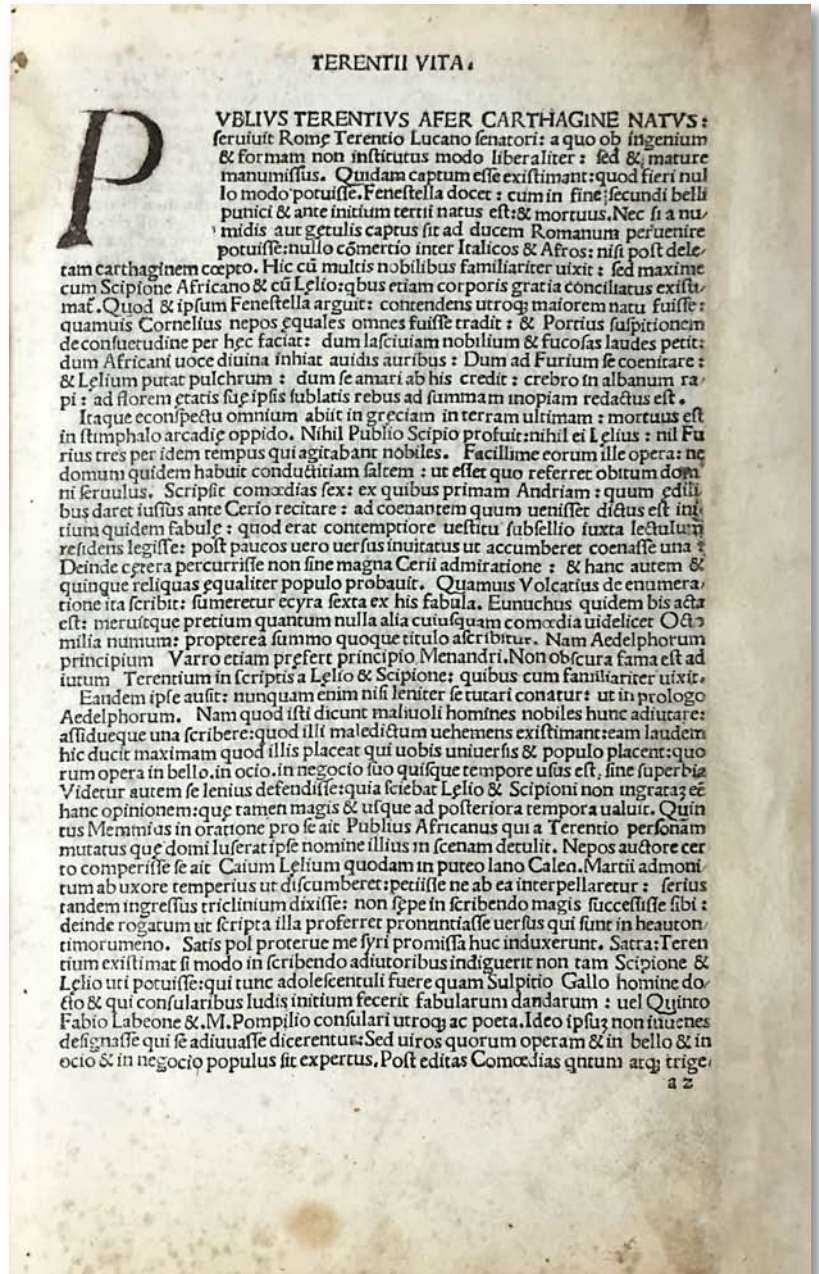 TERENTII VITA.
PVBLIVS TERENTIVS AFER CARTHAGINE NATVS:
ſeruiuit Romę Terentio Lucano ſenatori: a quo ob ingenium
& formam non inſtitutus modo liberaliter: ſed & mature
manumiſſus. Quidam captum eſſe exiſtimant:quod fieri nul
lo modo potuiſſe.Feneſtella docet: cum in fine ſecundi belli
punici & ante initium tertii natus eſt:& mortuus.Nec ſi a nu/
midis aut gętulis captus ſit ad ducem Romanum peruenire
potuiſſe:nullo cōmertio inter Italicos & Afros: niſi poſt dele/
tam carthaginem cœpto. Hic cū multis nobilibus familiariter uixit: ſed maxime
cum Scipione Africano & cū Lęlio:qbus etiam corporis gratia conciliatus exiſtı/
mat̄.Quod & ipſum Feneſtella arguit: contendens utroq; maiorem natu fuiſſe:
quamuis Cornelius nepos ęquales omnes fuiſſe tradit: & Portius ſuſpitionem
de conſuetudine per hęc faciat: dum laſciuiam nobilium & fucoſas laudes petit:
dum Africani uoce diuina inhiat auidis auribus: Dum ad Furium ſe coenitare:
& Lęlium putat pulchrum: dum ſe amari ab his credit: crebro in albanum ra/
pi: ad florem ętatis ſuę ipſis ſublatis rebus ad ſummam inopiam redactus eſt.
Itaque e conſpectu omnium abiit in gręciam in terram ultimam: mortuus eſt
in ſtimphalo arcadię oppido. Nihil Publio Scipio profuit:nihil ei Lęlius: nil Fu
rius tres per idem tempus qui agitabant nobiles. Facillime eorum ille opera: ne
domum quidem habuit conductitiam ſaltem: ut eſſet quo referret obitum domi
ni ſeruulus. Scripſit comœdias ſex: ex quibus primam Andriam: quum ędili
bus daret iuſſus ante Cerio recitare: ad coenantem quum ueniſſet dictus eſt ini
tium quidem fabulę: quod erat contemptiore ueſtitu ſubſellio iuxta lectulum
reſidens legiſſe: poſt paucos uero uerſus inuitatus ut accumberet coenaſſe una:
Deinde cętera percurriſſe non ſine magna Cerii admiratione: & hanc autem &
quinque reliquas ęqualiter populo probauit. Quamuis Volcatius de enumera/
tione ita ſcribit: ſumeretur ecyra ſexta ex his fabula. Eunuchus quidem bis acta
eſt: meruitque pretium quantum nulla alia cuiuſquam comœdia uidelicet Octo
milia numum: propterea ſummo quoque titulo aſcribitur. Nam Aedelphorum
principium Varro etiam pręfert principio Menandri.Non obſcura fama eſt ad
iutum Terentium in ſcriptis a Lęlio & Scipione: quibus cum familiariter uixit.
Eandem ipſe auſit: nunquam enim niſi leniter ſe tutari conatur: ut in prologo
Aedelphorum. Nam quod iſti dicunt maliuoli homines nobiles hunc adiutare:
aſſidueque una ſcribere:quod illi maledictum uehemens exiſtimant:eam laudem
hic ducit maximam quod illis placeat qui uobis uniuerſis & populo placent:quo
rum opera in bello.in ocio.in negocio ſuo quiſque tempore uſus eſt, ſine ſuperbia
Videtur autem ſe lenius defendiſſe:quia ſciebat Lęlio & Scipioni non ingrataʒ eē
hanc opinionem:quę tamen magis & uſque ad poſteriora tempora ualuit. Quin
tus Memmius in oratione pro ſe ait Publius Africanus qui a Terentio perſonam
mutatus quę domi luſerat ipſe nomine illius in ſcenam detulit. Nepos auctore cer
to comperiſſe ſe ait Caium Lęlium quodam in puteolano Calen.Martii admoni
tum ab uxore temperius ut diſcumberet:petiiſſe ne ab ea interpellaretur: ſerius
tandem ingreſſus triclinium dixiſſe: non ſępe in ſcribendo magis ſucceſſiſſe ſibi:
deinde rogatum ut ſcripta illa proferret pronuntiaſſe uerſus qui ſunt in heauton/
timorumeno. Satis pol proterue me ſyri promiſſa huc induxerunt. Satra:Teren
tium exiſtimat ſi modo in ſcribendo adiutoribus indiguerit non tam Scipione &
Lęlio uti potuiſſe:qui tunc adoleſcentuli fuere quam Sulpitio Gallo homine do/
cto & qui conſularibus ludis initium fecerit fabularum dandarum: uel Quinto
Fabio Labeone &.M.Pompilio conſulari utroq; ac poeta.Ideo ipſuʒ non iuuenes
deſignaſſe qui ſe adiuuaſſe dicerentur:Sed uiros quorum operam & in bello & in
ocio & in negocio populus ſit expertus.Poſt editas Comœdias qntum atq; trige/
a 2